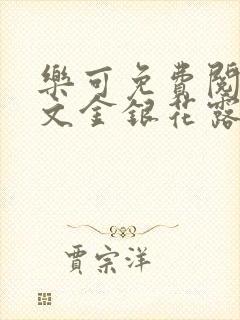 樂可免費閱
文金銀花露
賈宗洋